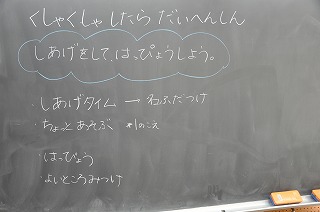 くしゃくしゃしたら だいへんしん
しあげをして、はっぴょうしよう。
・しあげタイム → ねふだつけ
・ちょっとあそぶ *1のこえ
・はっぴょう
・よいところみつけ